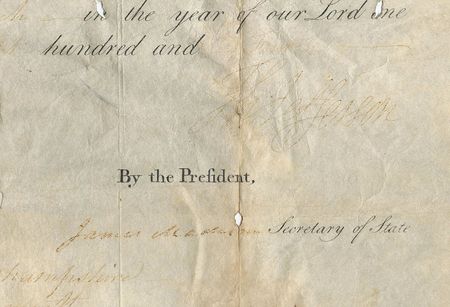 in the year of our Lord one
hundred and
Th Jefferson
By the Preſident,
James Madison Secretary of State
hampshire